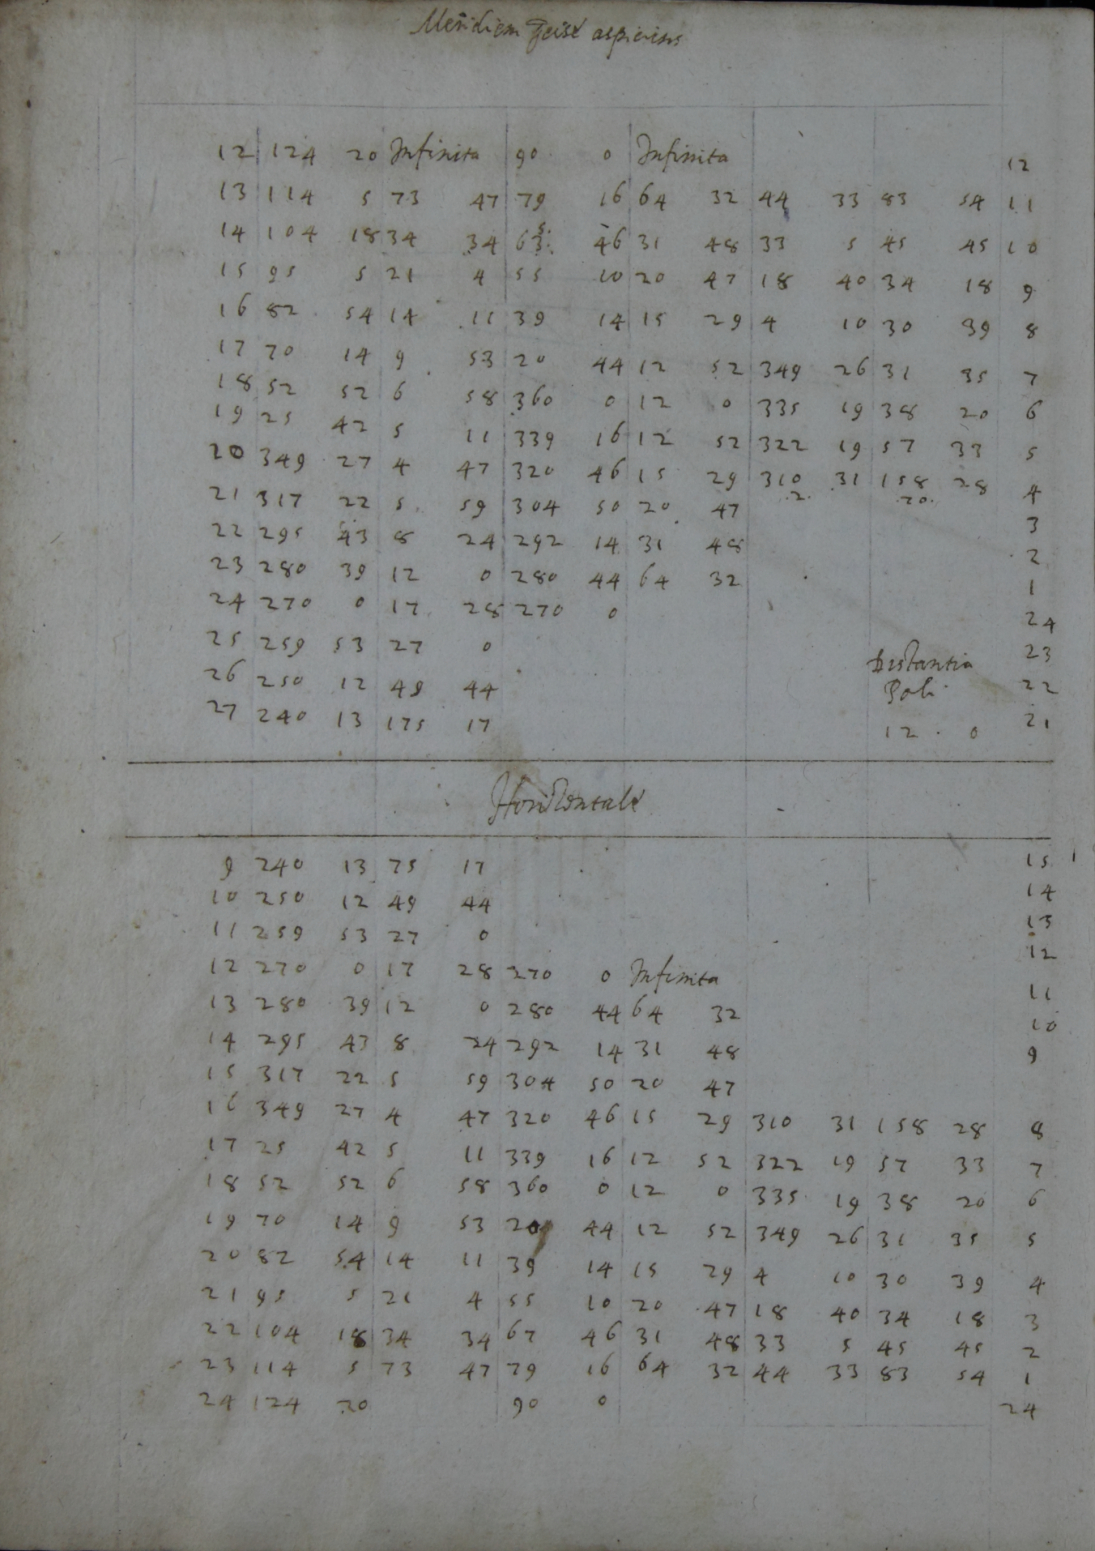 Meridiem aspiciens
12 124 20 Infinita 90 0 Infinita 12
13 114 5 73 47 79 16 64 32 44 33 83 54 11
14 104 18 34 34 46 31 48 33 5 45 45 10
15 95 5 21 4 55 10 20 47 18 40 34 18 9
16 82 54 14 11 39 14 15 29 4 10 30 39 8
17 70 14 9 53 20 44 12 52 349 26 31 35 7
18 52 52 6 58 360 0 12 0 335 19 38 20 6
19 25 42 5 11 339 16 12 52 322 19 57 33 5
20 349 27 4 47 320 46 15 29 310 31 158 28 4
2. 20.
21 317 22 5 59 304 50 20 47 3
22 295 43 8 24 292 14 31 48 2
23 280 39 12 0 280 44 64 32 1
24 270 0 17 28 270 0 24
25 259 53 27 0 Distantia 23
26 250 12 49 44 Poli 22
27 240 13 175 17 12 . 0 21
Horizontale
9 240 13 75 17 15
10 250 12 49 44 14
11 259 53 27 0 13
12 270 0 17 28 270 0 Infinita 12
13 280 39 12 0 280 44 64 32 11
14 295 43 8 24 292 14 31 48 10
15 317 22 5 59 304 50 20 47 9
16 349 27 4 47 320 46 15 29 310 31 158 28 8
17 25 42 5 11 339 16 12 52 322 19 57 33 7
18 52 52 6 58 360 0 12 0 335 19 38 20 6
19 70 14 9 53 20 44 12 52 349 26 31 35 5
20 82 54 14 11 39 14 15 29 4 10 30 39 4
21 95 5 21 4 55 10 20 47 18 40 34 18 3
22 104 18 34 34 67 46 31 48 33 5 45 45 2
23 114 5 73 47 79 16 64 32 44 33 83 54 1
24 124 20 90 0 24